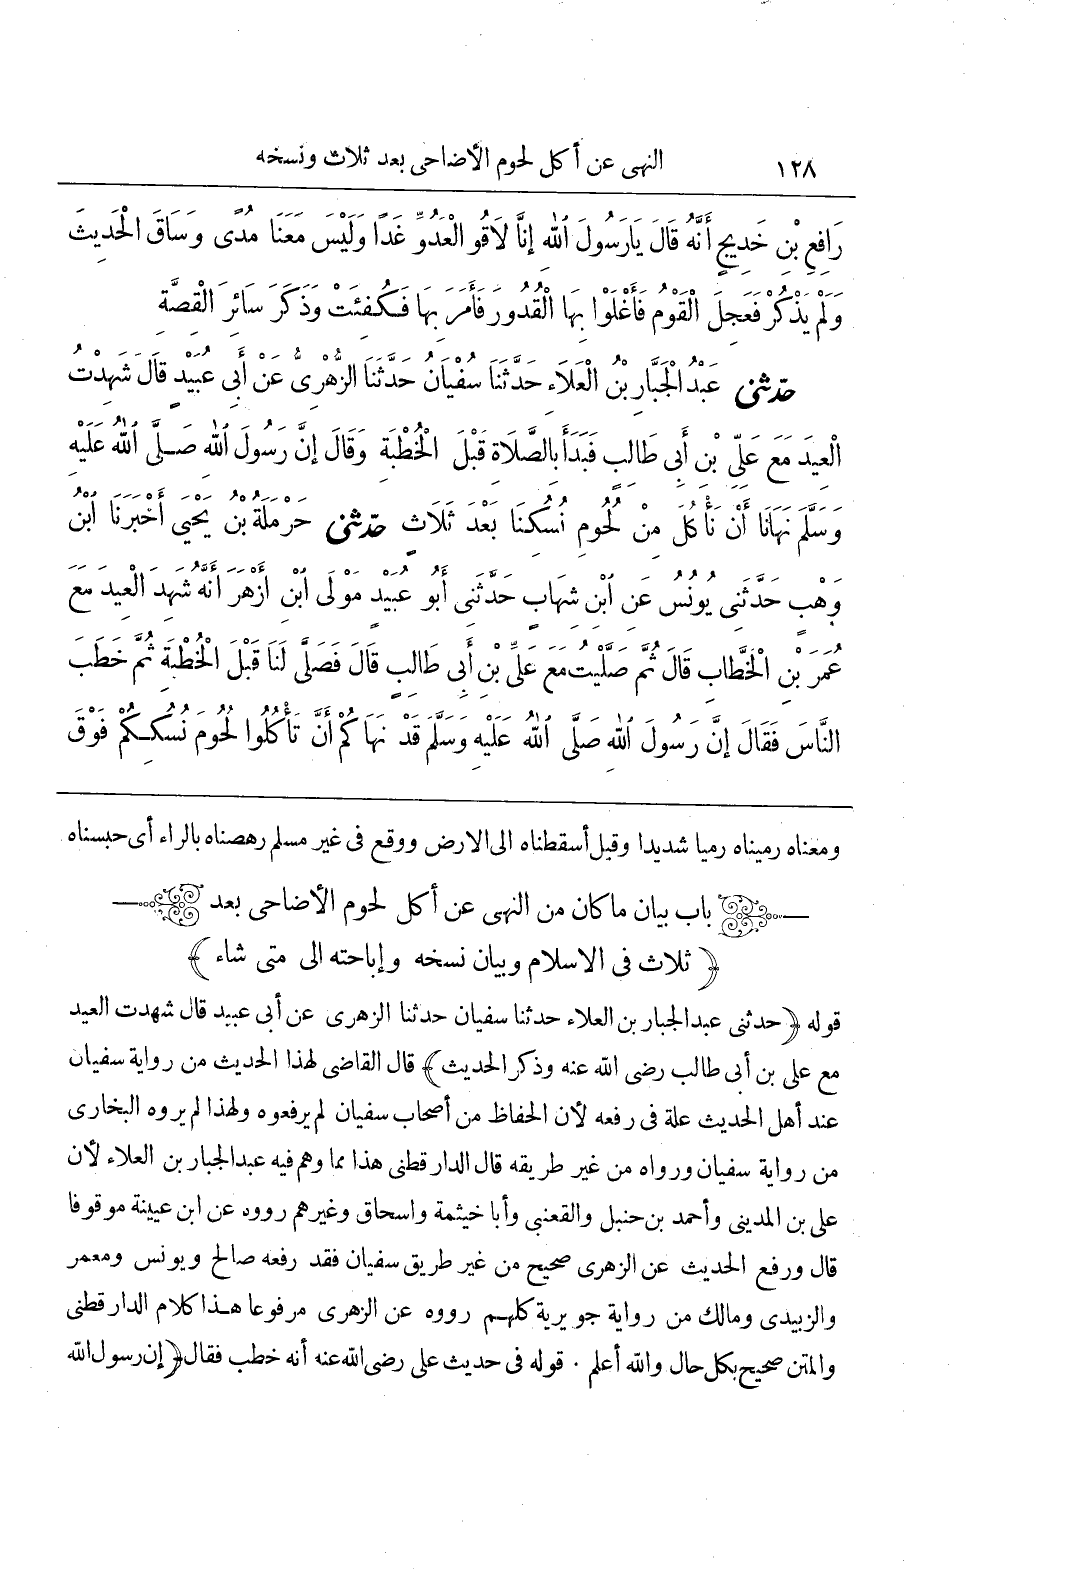 ١٢٨ النهى عن أكل لحوم الأضاحى بعد ثلاث ونسخه
رَافِعِ بْنِ خَدِيجٍ أَنَّهُ قَالَ يَارَسُولَ اللهِ إِنَّا لَاقُو الْعَدُوِّ غَدًا وَلَيْسَ مَعَنَا مُدًى وَسَاقَ الْحَدِيثَ
وَلَمْ يَذْكُرْ فَعَجِلَ الْقَوْمُ فَأَغْلَوْا بِهَا الْقُدُورَ فَأَمَرَ بِهَا فَكُفِئَتْ وَذَكَرَ سَائِرَ الْقِصَّةِ
حَدَّثَنِي عَبْدُ الْجَبَّارِ بْنُ الْعَلَاءِ حَدَّثَنَا سُفْيَانُ حَدَّثَنَا الزُّهْرِىُّ عَنْ أَبِى عُبَيْدٍ قَالَ شَهِدْتُ
الْعِيدَ مَعَ عَلِىِّ بْنِ أَبِى طَالِبٍ فَبَدَأَ بِالصَّلَاةِ قَبْلَ الْخُطْبَةِ وَقَالَ إِنَّ رَسُولَ اللهِ صَلَّى اللهُ عَلَيْهِ
وَسَلَّمَ نَهَانَا أَنْ نَأْكُلَ مِنْ لُحُومِ نُسُكِنَا بَعْدَ ثَلَاثٍ حَدَّثَنِي حَرْمَلَةُ بْنُ يَحْيَى أَخْبَرَنَا ابْنُ
وَهْبٍ حَدَّثَنِى يُونُسُ عَنِ ابْنِ شِهَابٍ حَدَّثَنِى أَبُو عُبَيْدٍ مَوْلَى ابْنِ أَزْهَرَ أَنَّهُ شَهِدَ الْعِيدَ مَعَ
عُمَرَ بْنِ الْخَطَّابِ قَالَ ثُمَّ صَلَّيْتُ مَعَ عَلِىِّ بْنِ أَبِى طَالِبٍ قَالَ فَصَلَّى لَنَا قَبْلَ الْخُطْبَةِ ثُمَّ خَطَبَ
النَّاسَ فَقَالَ إِنَّ رَسُولَ اللهِ صَلَّى اللهُ عَلَيْهِ وَسَلَّمَ قَدْ نَهَاكُمْ أَنْ تَأْكُلُوا لُحُومَ نُسُكِكُمْ فَوْقَ
ومعناه رميناه رميا شديدا وقيل أسقطناه الى الارض ووقع فى غير مسلم رهصناه بالراء أى حبسناه
باب بيان ما كان من النهى عن أكل لحوم الأضاحى بعد
﴿ ثلاث فى الاسلام وبيان نسخه وإباحته الى متى شاء ﴾
قوله ﴿حدثنى عبد الجبار بن العلاء حدثنا سفيان حدثنا الزهرى عن أبى عبيد قال شهدت العيد
مع على بن أبى طالب رضى الله عنه وذكر الحديث﴾ قال القاضى لهذا الحديث من رواية سفيان
عند أهل الحديث علة فى رفعه لأن الحفاظ من أصحاب سفيان لم يرفعوه ولهذا لم يروه البخارى
من رواية سفيان ورواه من غير طريقه قال الدارقطنى هذا مما وهم فيه عبد الجبار بن العلاء لأن
على بن المدينى وأحمد بن حنبل والقعنبى وأبا خيثمة واسحاق وغيرهم رووه عن ابن عيينة موقوفا
قال ورفع الحديث عن الزهرى صحيح من غير طريق سفيان فقد رفعه صالح ويونس ومعمر
والزبيدى ومالك من رواية جويرية كلهم رووه عن الزهرى مرفوعا هذا كلام الدارقطنى
والمتن صحيح بكل حال والله أعلم . قوله فى حديث على رضى الله عنه أنه خطب فقال ﴿إن رسول الله